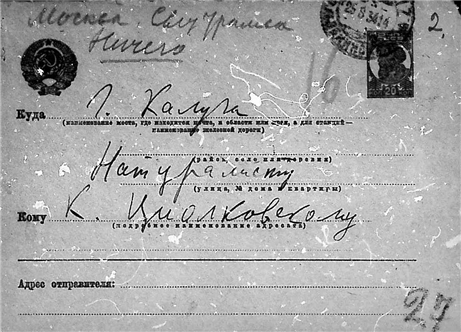 Москва
Ничего
25 8 34
2
16
20
Куда г. Калуга
(наименование места, где находится почта, и области или края, а для станций—
наименование железной дороги)
(район, село или деревня)
Натуралисту
(улица, № дома и квартиры)
Кому К. Циолковскому
(подробное наименование адресата)
Адрес отправителя:
27